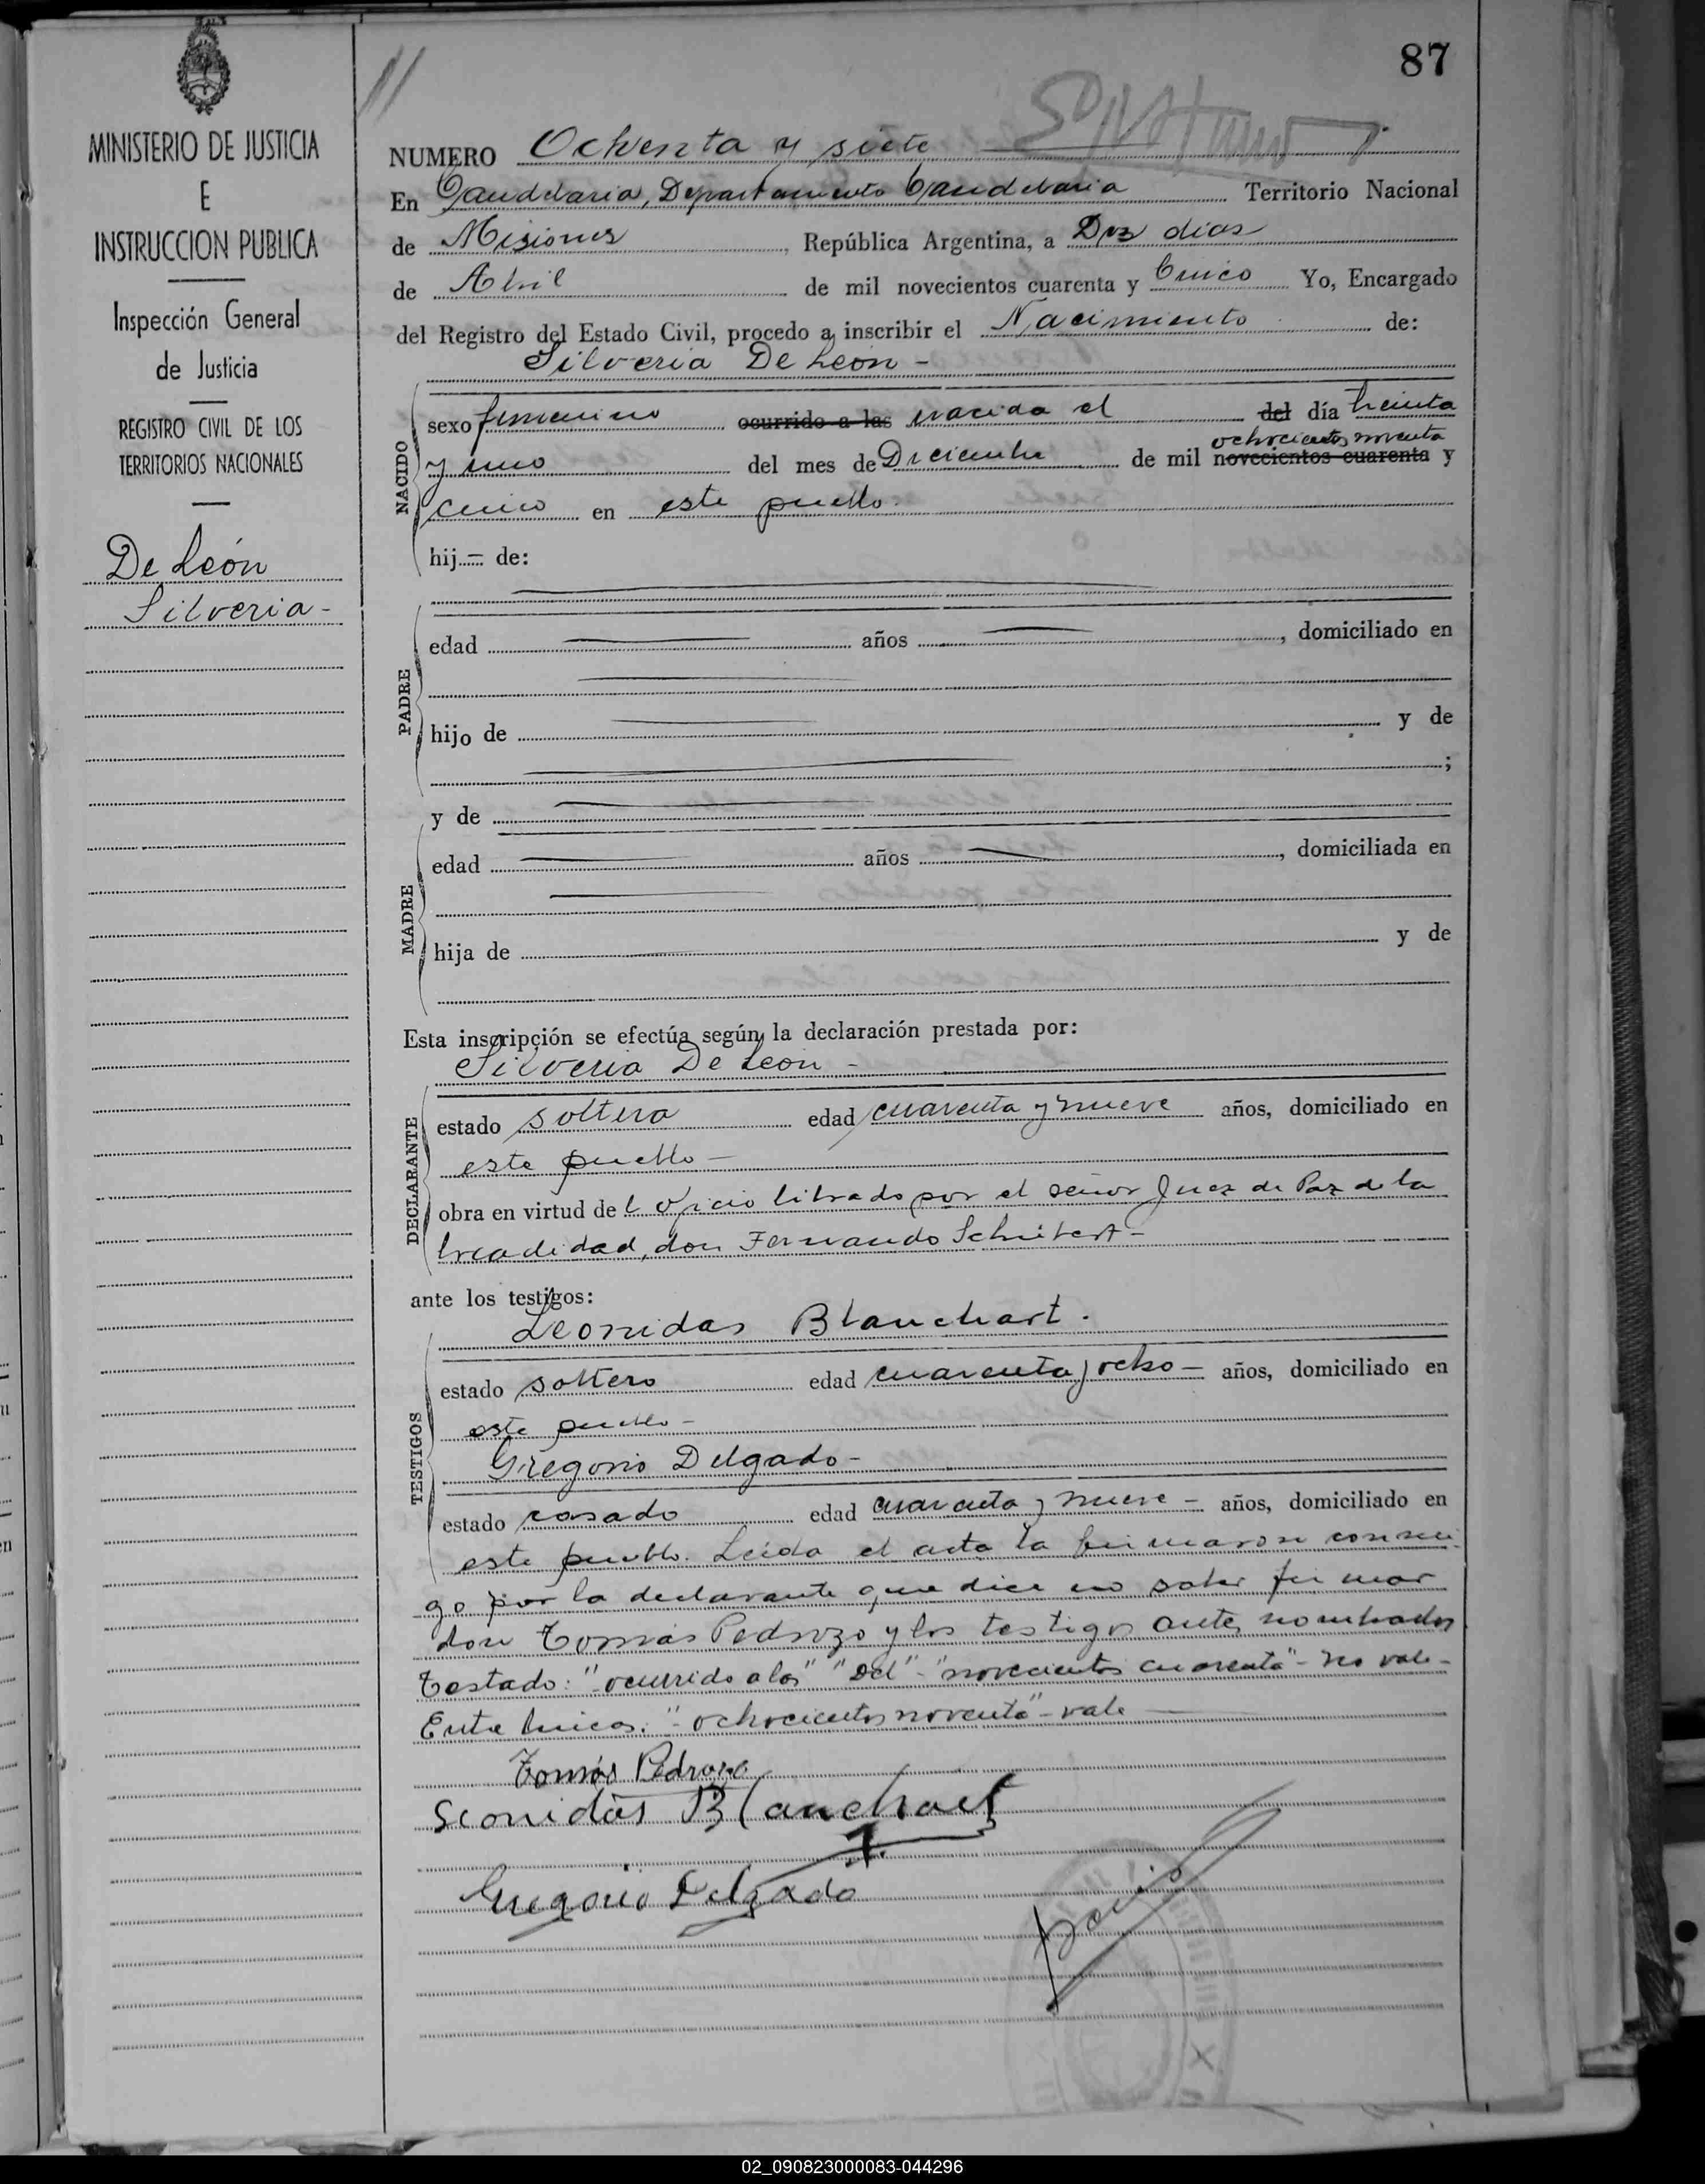 87
MINISTERIO DE JUSTICIA
E
INSTRUCCION PUBLICA
Inspección General
de Justicia
REGISTRO CIVIL DE LOS
TERRITORIOS NACIONALES
De León
Silveria -
NUMERO Ochenta y siete
En Candelaria, Departamento Candelaria Territorio Nacional
de Misiones, República Argentina, a Diez días
de Abril de mil novecientos cuarenta y Cinco Yo, Encargado
del Registro del Estado Civil, procedo a inscribir el Nacimiento de:
Silveria De Leon -
NACIDO
sexo femenino ocurrido a las nacida el del día treinta
ochocientos noventa
y uno del mes de Diciembre de mil novecientos cuarenta y
cinco en este pueblo.
hij de:
PADRE
edad años , domiciliado en
hijo de y de
;
y de
MADRE
edad años , domiciliada en
hija de y de
Esta inscripción se efectúa según la declaración prestada por:
Silveria De Leon -
DECLARANTE
estado soltera edad cuarenta y nueve años, domiciliado en
este pueblo -
obra en virtud del oficio librado por el señor Juez de Paz de la
don Fernando Schubert -
ante los testigos:
Leonidas Blanchart.
TESTIGOS
estado soltero edad cuarenta y ocho - años, domiciliado en
este pueblo -
Gregorio Delgado -
estado casado edad cuarenta y nueve - años, domiciliado en
este pueblo. Leida el acta la firmaron conmi-
go por la declarante que dice no saber firmar
don Tomás Pedrozo y los testigos antes nombrados
Testado: "ocurrido a las" "del" - "novecientos cuarenta" - no vale -
Entre lineas: "ochocientos noventa" - vale
Tomás Pedrozo
Leonidas Blanchart
Gregorio Delgado
02_090823000083-044296